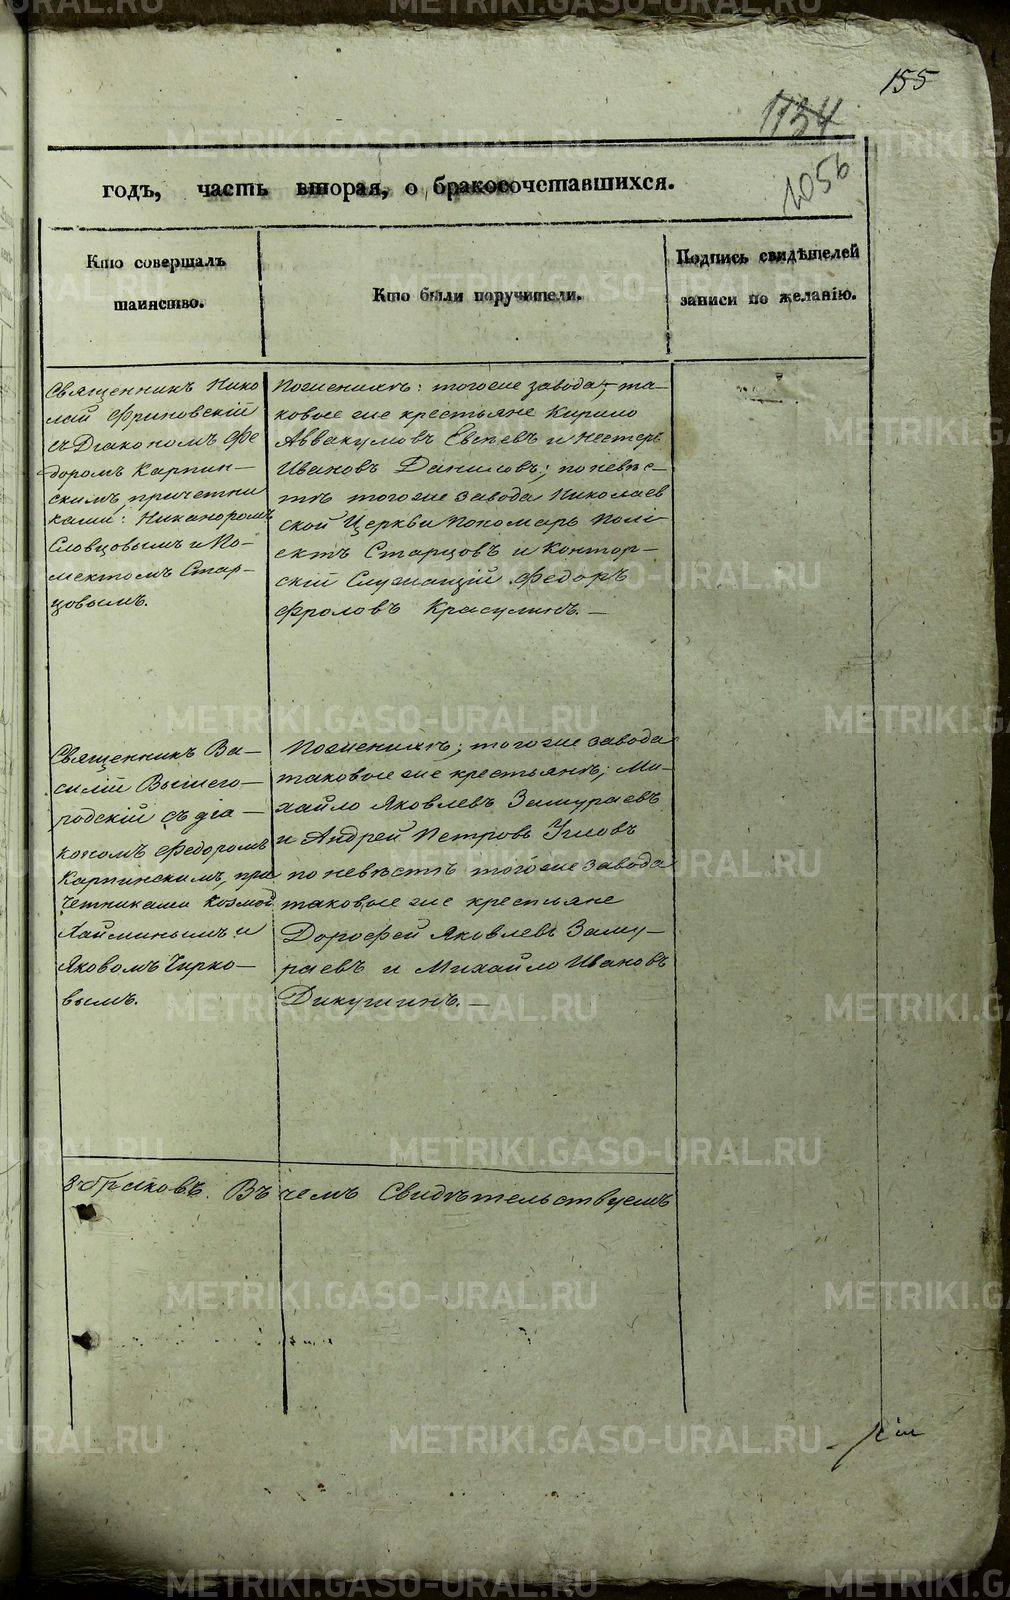 155
1134
1056
годъ, часть вторая, о бракосочетавшихся.
Кто совершалъ
таинство.
Кто были поручители.
Подпись свидѣтелей
записи по желанію.
Священникъ Нико
лай Фриновскій
съ Діакономъ Фе
доромъ Карпин-
скимъ, причетни
ками: Никаноромъ
Словцовымъ и По-
лектомъ Стар-
цовымъ.
По женихѣ: тогоже завода, та-
ковые же крестьяне Кирило
Аввакумовъ Евсѣевъ и Нестеръ
Ивановъ Даниловъ; по невѣс-
тѣ тогоже завода Николаев
ской Церкви Пономарь Поли
ектъ Старцовъ и Контор-
скій Служащій Федоръ
Фроловъ Красулинъ. -
Священникъ Ва-
силій Вышего-
родскій съ діа-
кономъ Федоромъ
Карпинскимъ, при
четниками Козмой
Хайминымъ и
Яковомъ Чирко-
вымъ.
По женихѣ; тогоже завода
таковые же крестьянѣ; Ми-
хайло Яковлевъ Замураевъ
и Андрей Петровъ Угловъ
по невѣстѣ тогоже завода
таковые же крестьяне
Дорофей Яковлевъ Заму-
раевъ и Михайло Ивановъ
Дикушинъ. -
браковъ. Въ чемъ Свидѣтельствуемъ
METRIKI.GASO-URAL.RU